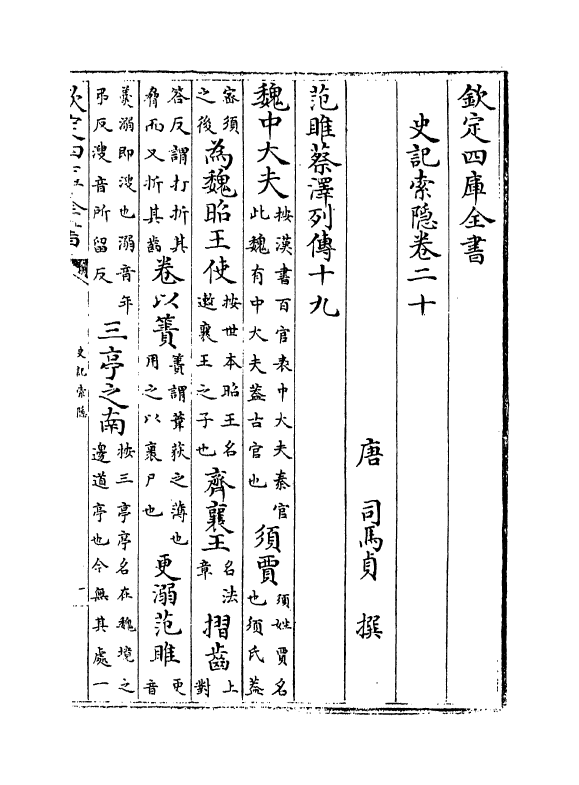 欽定四庫全書
史記索隱卷二十
唐 司馬貞 撰
范雎蔡澤列傳十九
魏中大夫 按漢書百官表中大夫秦官 此魏有中大夫葢古官也 須賈 須姓賈名 也須氏葢
密須 之後 為魏昭王使 按世本昭王名 遫襄王之子也 齊襄王 名法 章 摺齒 上 對
答反謂打折其 脅而又折其齒 卷以簀 簀謂葦荻之薄也 用之以裹尸也 更溺范雎 更 音
羮溺即溲也溺音年 弔反溲音所留反 三亭之南 按三亭亭名在魏境之 邊道亭也今無其處一
欽定四庫全書
史記索隱
一